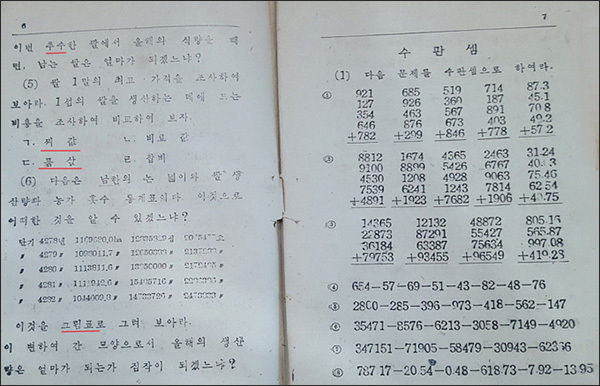 6
이번 추수한 쌀에서 올해의 식량을 빼
면, 남는 쌀은 얼마가 되겠느냐?
(5) 쌀 1말의 최고 가격을 조사하여
보아라. 1섬의 쌀을 생산하는 데에 드는
비용을 조사하여 비교하여 보자.
ㄱ. 씨 값 ㄴ. 비료 값
ㄷ. 품 삯 ㄹ. 잡비
(6) 다음은 남한의 논 넓이와 쌀 생
산량과 농가 홋수 통계표이다. 이것으로
어떠한 것을 알 수 있겠느냐?
단기 4278년
〃 4279 〃
〃 4280 〃
〃 4281 〃
〃 4282 〃
이것을 그림표로 그려 보아라.
이 변하여 간 모양으로서 올해의 생산
량은 얼마가 되는가 짐작이 되겠느냐?
7
수 판 셈
(1) 다음 문제를 수판셈으로 하여라.
① 921 685 519 714 87.3
127 926 360 187 45.1
354 463 567 891 70.8
646 876 673 403 49.2
+782 +299 +846 +778 +57.2
② 8812 1674 4365 2463 31.24
9100 8899 5426 6767
4530 1208 4928 9063 75.46
7539 6241 1243 7814 62.54
+4891 +1923 +7682 +1906
③ 14365 12132 48872 805.16
22873 87291 55427 565.87
36184 63387 75634 997.08
+79753 +93455 +96549 +419.28
④ 654-57-69-51-43-82-48-76
⑤ 2800-285-396-973-418-562-147
⑥ 35471-8576-6213-3058-7149-4920
⑦ 347151-71905-58479-30943-62366
⑧ 787.17-20.54-0.48-618.73-7.92-13.95